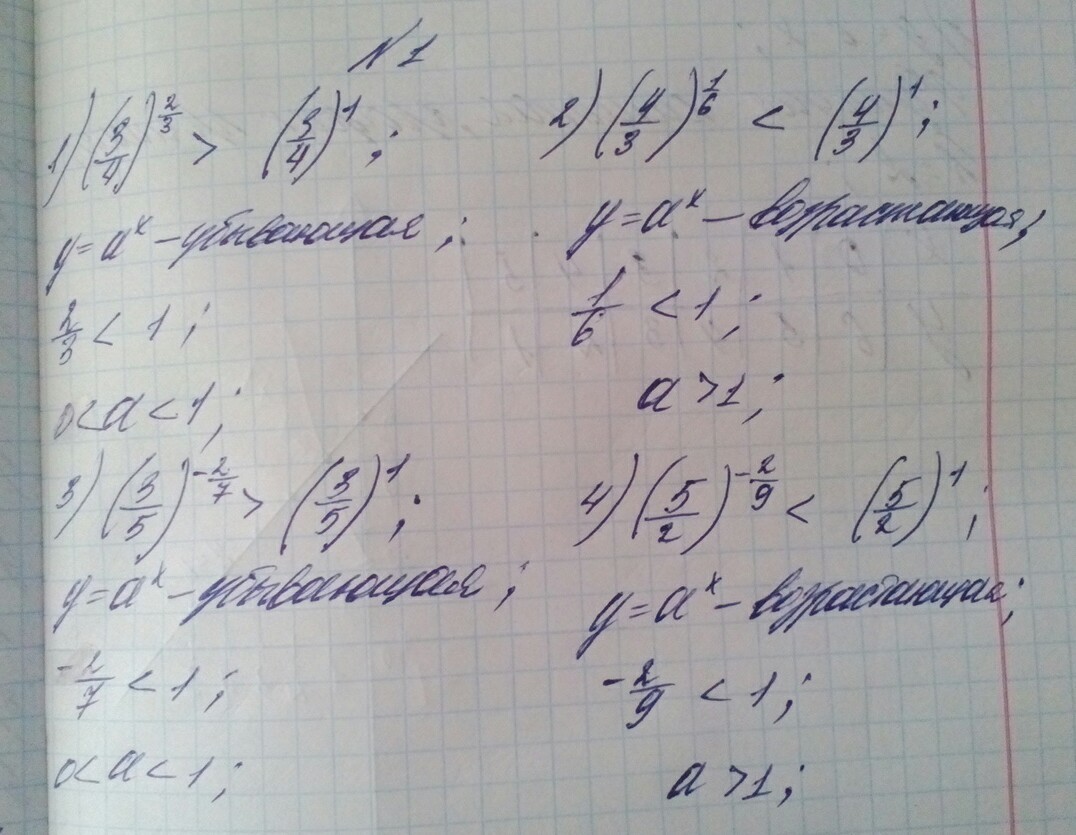 №1
1) (3/4)^(2/3) > (3/4)^1 ;
y = a^x – убывающая ;
2/3 < 1 ;
0 < a < 1 ;
2) (4/3)^(1/6) < (4/3)^1 ;
y = a^x – возрастающая ;
1/6 < 1 ;
a > 1 ;
3) (3/5)^(-2/7) > (3/5)^1 ;
y = a^x – убывающая ;
-2/7 < 1 ;
0 < a < 1 ;
4) (5/2)^(-2/9) < (5/2)^1 ;
y = a^x – возрастающая ;
-2/9 < 1 ;
a > 1 ;